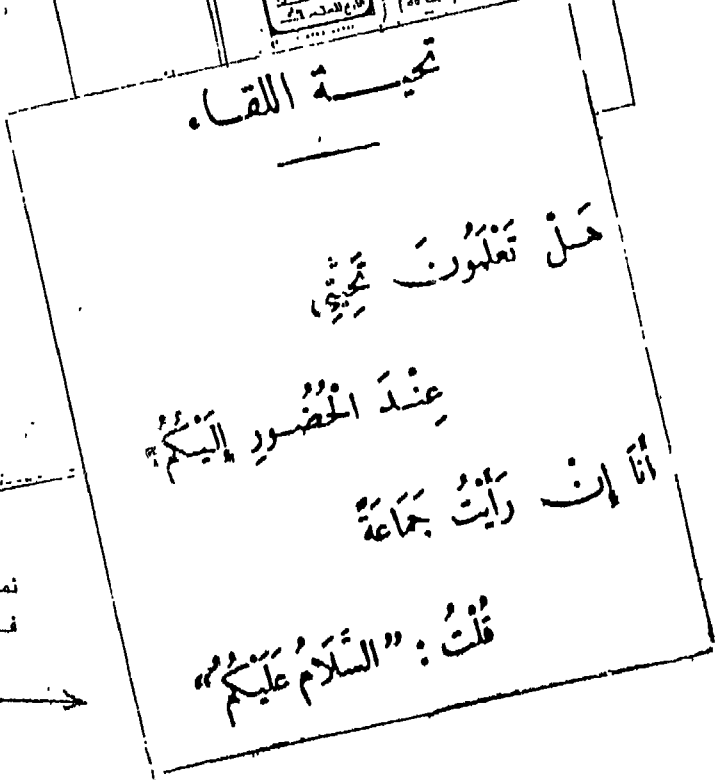 تحيــة اللقاء
هَلْ تَعْلَمُونَ تَحِيَّتِي
عِنْدَ الْحُضُورِ إِلَيْكُمُ
أَنَا إِنْ رَأَيْتُ جَمَاعَةً
قُلْتُ: "السَّلَامُ عَلَيْكُمُ"